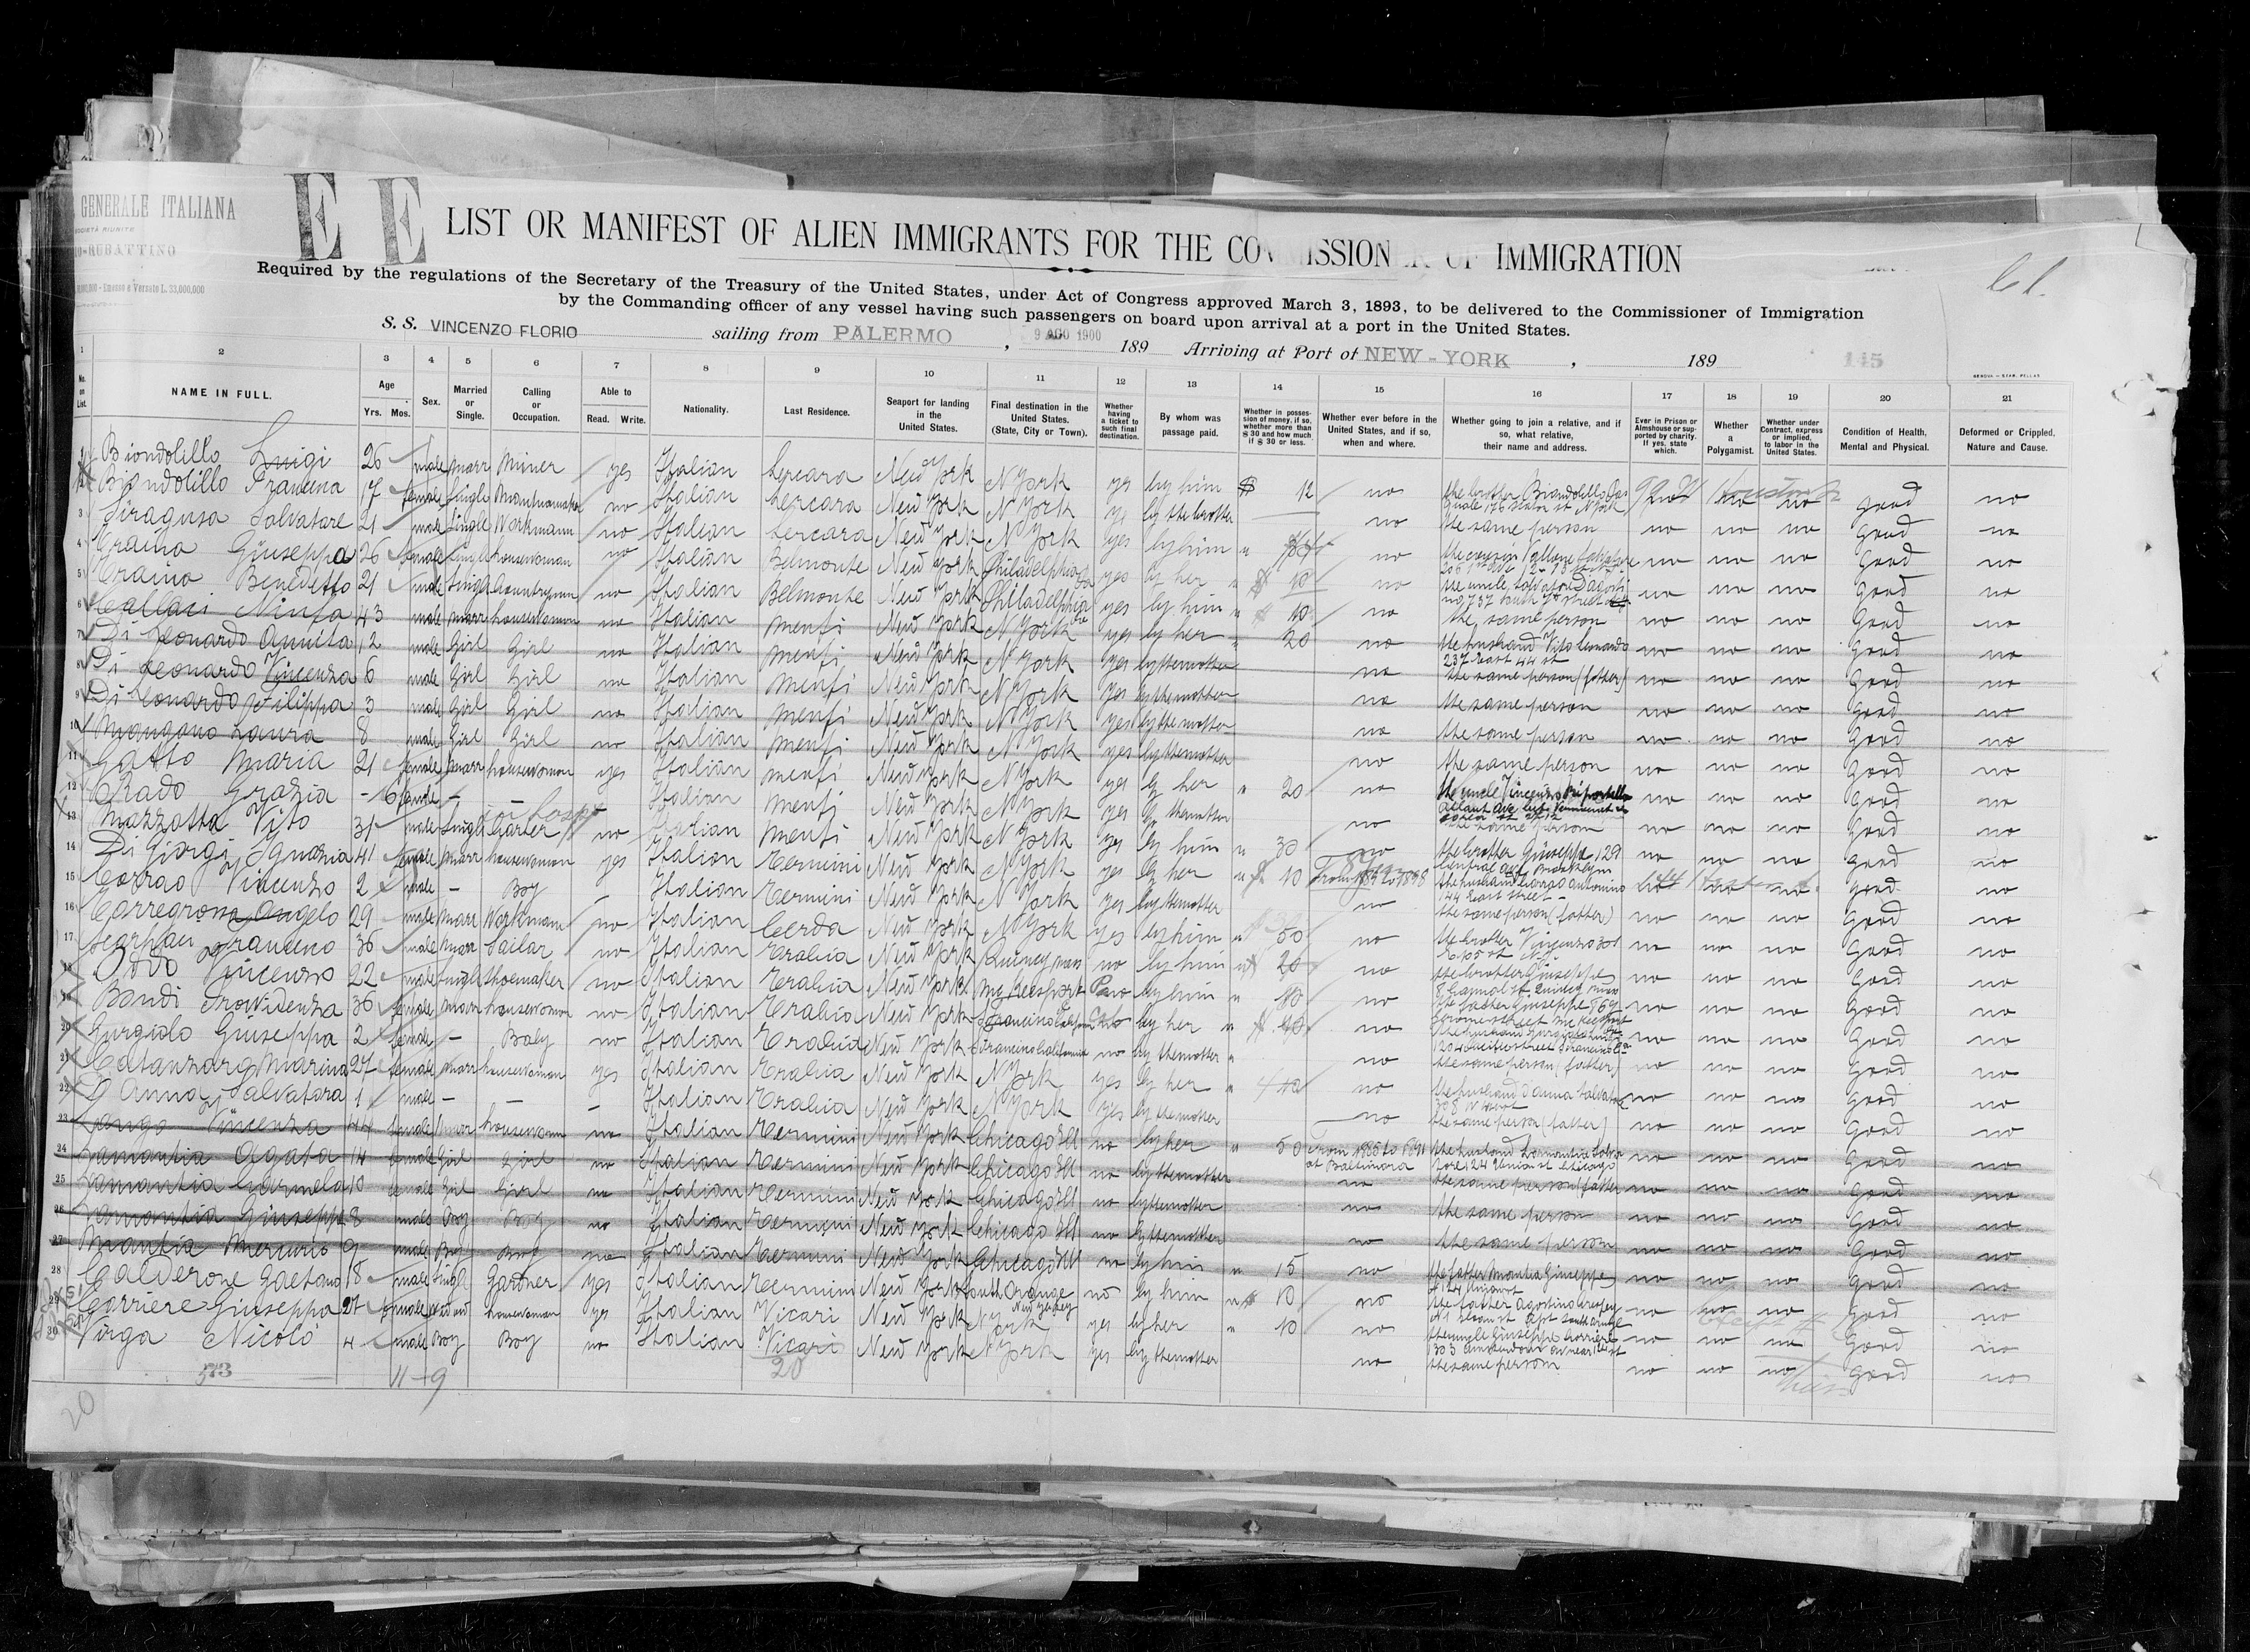 GENERALE ITALIANA
SOCIETÀ RIUNITE
RUBATTINO
Emesso e Versato L. 33,000,000
E E
LIST OR MANIFEST OF ALIEN IMMIGRANTS FOR THE COMMISSIONER OF IMMIGRATION
61.
Required by the regulations of the Secretary of the Treasury of the United States, under Act of Congress approved March 3, 1893, to be delivered to the Commissioner of Immigration
by the Commanding officer of any vessel having such passengers on board upon arrival at a port in the United States.
S. S. VINCENZO FLORIO sailing from PALERMO, 9 AGO 1900 189 Arriving at Port of NEW-YORK, 189
145
1 2 3 4 5 6 7 8 9 10 11 12 13 14 15 16 17 18 19 20 21
No. on List. NAME IN FULL. Age Yrs. Mos. Sex. Married or Single. Calling or Occupation. Able to Read. Write. Nationality. Last Residence. Seaport for landing in the United States. Final destination in the United States. (State, City or Town). Whether having a ticket to such final destination. By whom was passage paid. Whether in possession of money, if so, whether more than $ 30 and how much if $ 30 or less. Whether ever before in the United States, and if so, when and where. Whether going to join a relative, and if so, what relative, their name and address. Ever in Prison or Almshouse or supported by charity. If yes, state which. Whether a Polygamist. Whether under Contract, express or implied, to labor in the United States. Condition of Health, Mental and Physical. Deformed or Crippled, Nature and Cause.
1 Biondolillo Luigi 26 male marr Miner yes Italian Lercara New York N York yes by him $ 12 no the brother Biondolillo no no good no
2 Biondolillo 17 female single no Italian Lercara New York N York yes by the brother no the same person no no no good no
3 Siragusa Salvatore 21 male single Workmann no Italian Lercara New York N York yes by him no the cousin no no no good no
4 Traina Giuseppa 26 female single housewoman no Italian Belmonte New York Philadelphia yes by her 10 no the uncle Salvatore no no no good no
5 Traina Benedetto 21 male single Countryman no Italian Belmonte New York Philadelphia yes by him 10 no the same person no no no good no
6 Callaci Ninfa 43 male marr housewoman no Italian Menfi New York N York yes by her 20 no the husband Vito Leonardo 237 East 44 st no no no good no
7 Di Leonardo Annita 12 male Girl Girl no Italian Menfi New York N York yes by the mother no the same person (father) no no no good no
8 Di Leonardo Vincenza 6 male Girl Girl no Italian Menfi New York N York yes by the mother no the same person no no no good no
9 Di Leonardo Filippa 3 male Girl Girl no Italian Menfi New York N York yes by the mother no the same person no no no good no
10 Mangano Laura 8 male Girl Girl no Italian Menfi New York N York yes by the mother no the same person no no no good no
11 Gatto Maria 21 female marr housewoman yes Italian Menfi New York N York yes by her 20 no the uncle Vincenzo no no no good no
12 Prado Grazia female - - - Italian Menfi New York N York yes by the mother no the same person no no no good no
13 Mazzotta Vito 31 male single Carter no Italian Menfi New York N York yes by him 30 no the brother Giuseppe 129 Central ave Brooklyn no no no good no
14 Di Giorgi Ignazia 41 female marr housewoman yes Italian Termini New York N York yes by her 10 From 1892 to 1898 the husband Corrao Antonino 144 East street no no good no
15 Corrao Vincenzo 2 male - Boy - Italian Termini New York N York yes by the mother no the same person (father) no no no good no
16 Carregrossa Angelo 29 male marr Workmann no Italian Cerda New York N York yes by him 50 no the brother Vincenzo 301 no no no good no
17 36 male marr Sailor no Italian Trabia New York Quincy mass no by him 20 no the brother Giuseppe no no no good no
18 Oddo Vincenzo 22 male single shoemaker no Italian Trabia New York Mc Keesport Pa no by him 10 no the father Giuseppe 869 Jerome street Mc Keesport no no no good no
19 Bondi Provvidenza 36 female marr housewoman no Italian Trabia New York S Francisco by her 40 no the husband no no no good no
20 Gurgiolo Giuseppa 2 female - Baby no Italian Trabia New York S Francisco California no by the mother no the same person (father) no no no good no
21 Catanzaro Marina 27 female marr housewoman yes Italian Trabia New York N York yes by her 10 no the husband D Anna Salvatore no no no good no
22 D Anna Salvatora 1 male - - - Italian Trabia New York N York yes by the mother no the same person (father) no no no good no
23 Longo Vincenza 44 female marr housewoman no Italian Termini New York Chicago Ill no by her 50 From 1885 to 1891 at Baltimora the husband Lamantia Salvatore 124 Union st Chicago no no no good no
24 Lamantia Agata 14 female Girl Girl no Italian Termini New York Chicago Ill no by the mother no the same person (father no no no good no
25 Lamantia Carmela 10 female Girl Girl no Italian Termini New York Chicago Ill no by the mother no the same person no no no good no
26 Lamantia Giuseppe 8 male Boy Boy no Italian Termini New York Chicago Ill no by the mother no the same person no no no good no
27 Mantia Mercurio 9 male Boy Boy no Italian Termini New York Chicago Ill no by him 15 no the father Mantia Giuseppe no no no good no
28 Calderone Gaetano 18 male single Gardner yes Italian Termini New York South Orange New Jersey no by him 10 no the father Agostino no no no good no
29 Carriere Giuseppa 27 female Widowd housewoman yes Italian Vicari New York N York yes by her 10 no the uncle Giuseppe Carriere 1303 Amsterdam av no no no good no
30 Virga Nicolò 4 male Boy Boy no Italian Vicari New York N York yes by the mother no the same person no no no good no
573 11-9 20
20